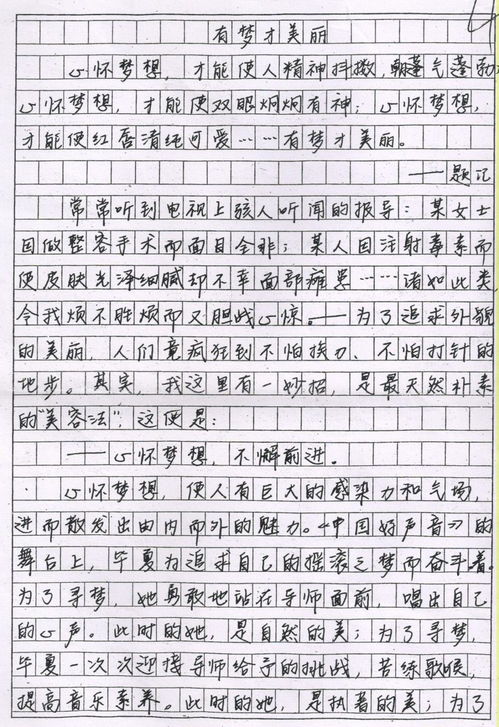 有梦才美丽
心怀梦想，才能使人精神抖擞，朝蓬气蓬勃
心怀梦想，才能使双眼炯炯有神；心怀梦想，
才能使红唇清纯可爱……有梦才美丽。
——题记
常常听到电视上骇人听闻的报导：某女士
因做整容手术而面目全非；某人因注射毒素而
使皮肤光泽细腻却不幸面部瘫患……诸如此类
令我烦不胜烦而又胆战心惊。——为了追求外貌
的美丽，人们竟疯狂到不怕挨刀、不怕打针的
地步。其实，我这里有一妙招，是最天然朴素
的“美容法”，这便是：
——心怀梦想，不懈前进。
心怀梦想，使人有巨大的感染力和气场，
进而散发出由内而外的魅力。《中国好声音》的
舞台上，毕夏为追求自己的摇滚之梦而奋斗着。
为了寻梦，她勇敢地站在导师面前，唱出自己
的心声。此时的她，是自然的美；为了寻梦，
毕夏一次次迎接导师给予的挑战，苦练歌喉，
提高音乐素养。此时的她，是执着的美；为了